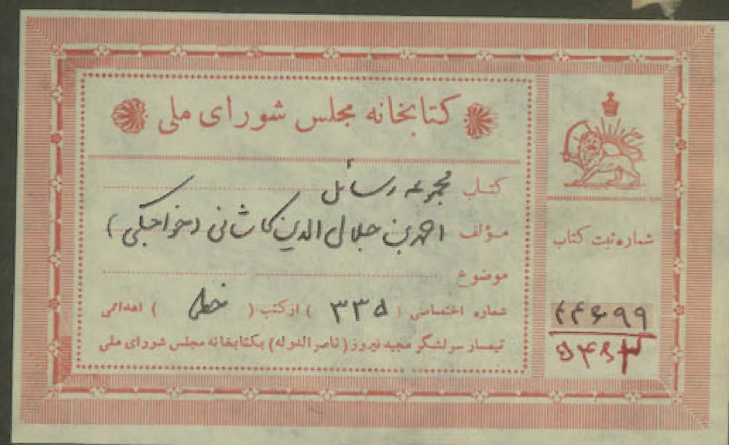 کتابخانه مجلس شورای ملی
کتاب مجموعه رسائل
مؤلف احمد بن جلال الدین کاشانی (خواجگی)
موضوع
شماره اختصاصی ( ۳۳۵ ) از کتب ( خطی ) اهدائی
تیمسار سرلشگر مجید فیروز (ناصر الدوله) بکتابخانه مجلس شورای ملی
شماره ثبت کتاب
۴۴۶۹۹